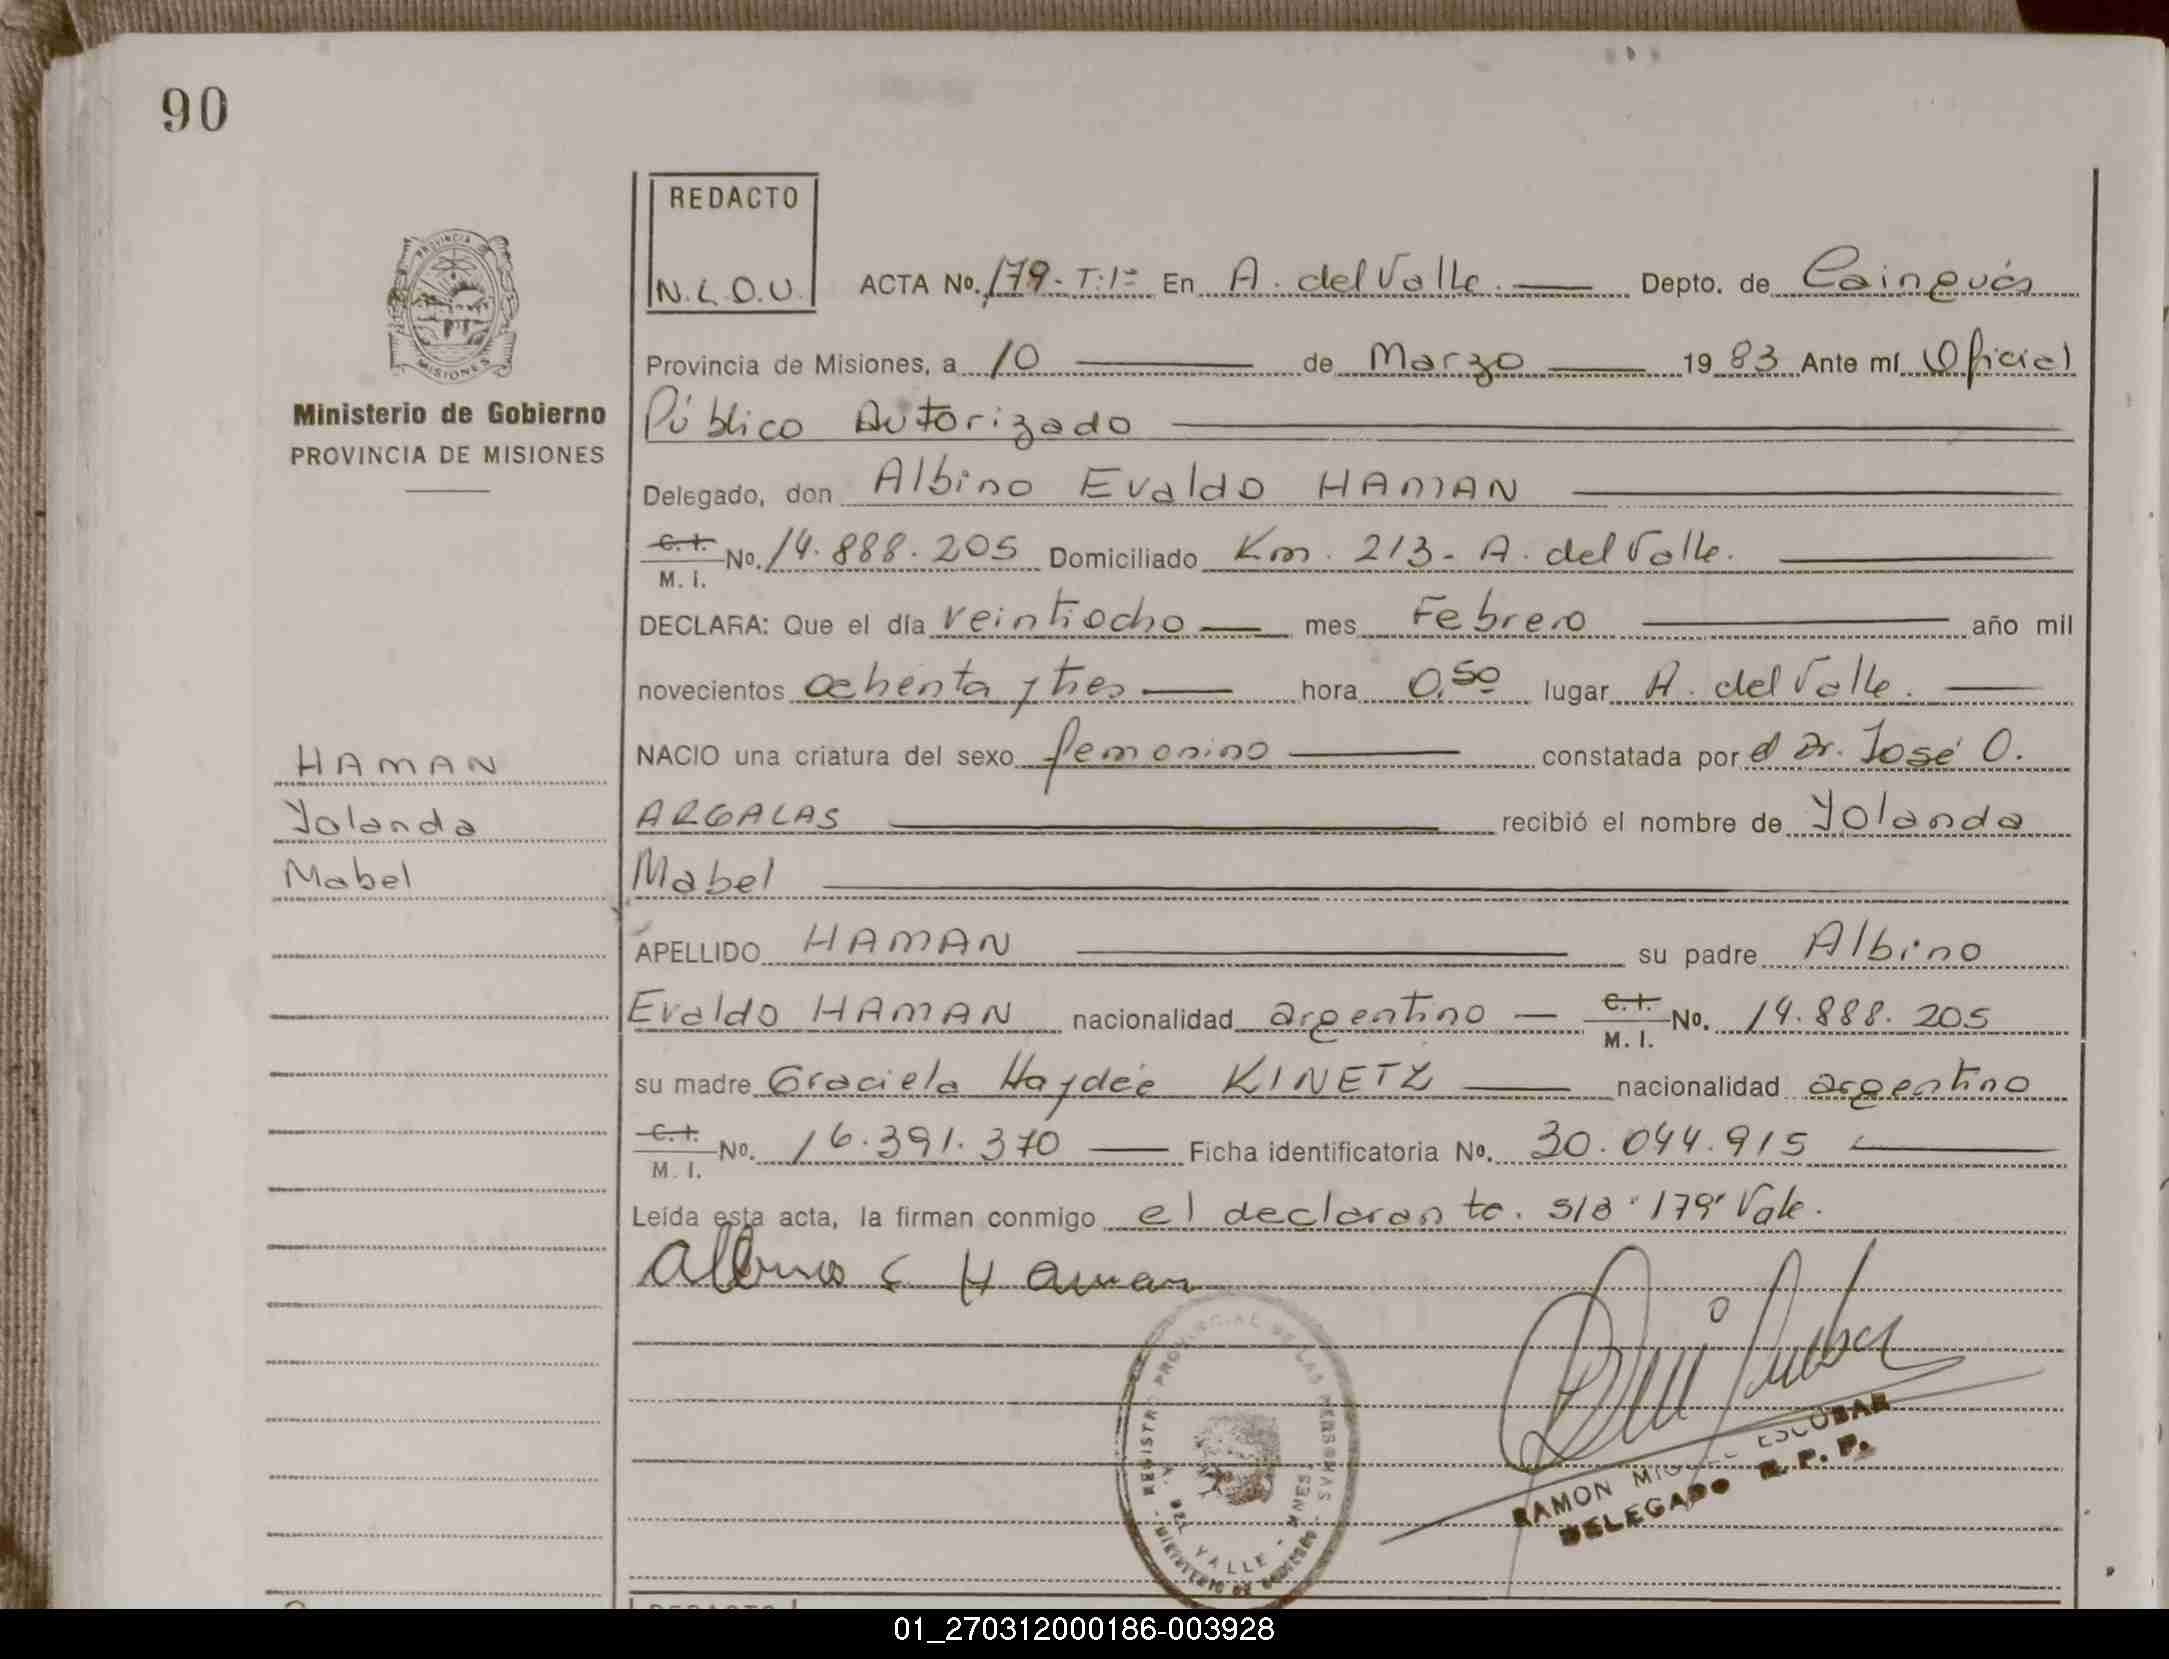 90
REDACTO
N.L.O.U.
ACTA No. 179-T:1º En A. del Valle. Depto. de Cainguás
Provincia de Misiones, a 10 de Marzo 1983 Ante mí Oficial
Público Autorizado
Ministerio de Gobierno
PROVINCIA DE MISIONES
Delegado, don Albino Evaldo HAMAN
C. I. M. I. No. 14.888.205 Domiciliado Km. 213- A. del Valle.
DECLARA: Que el día veintiocho mes Febrero año mil
novecientos ochenta y tres hora 0,50 lugar A. del Valle.
NACIO una criatura del sexo femenino constatada por el Dr. José O.
ARGALAS recibió el nombre de Yolanda
Mabel
HAMAN
Yolanda
Mabel
APELLIDO HAMAN su padre Albino
Evaldo HAMAN nacionalidad argentino C. I. M. I. No. 14.888.205
su madre Graciela Haydée KINETZ nacionalidad argentino
C. I. M. I. No. 16.391.370 Ficha identificatoria No. 30.044.915
Leída esta acta, la firman conmigo el declarante. S/a "179" Vale.
Albino E Haman
REGISTRO PROVINCIAL DE LAS PERSONAS
A. DEL VALLE - MNES.
MINISTERIO DE GOBIERNO
RAMON MIGUEL ESCOBAR
DELEGADO R. P. P.
PROVINCIA
MISIONES
01_270312000186-003928